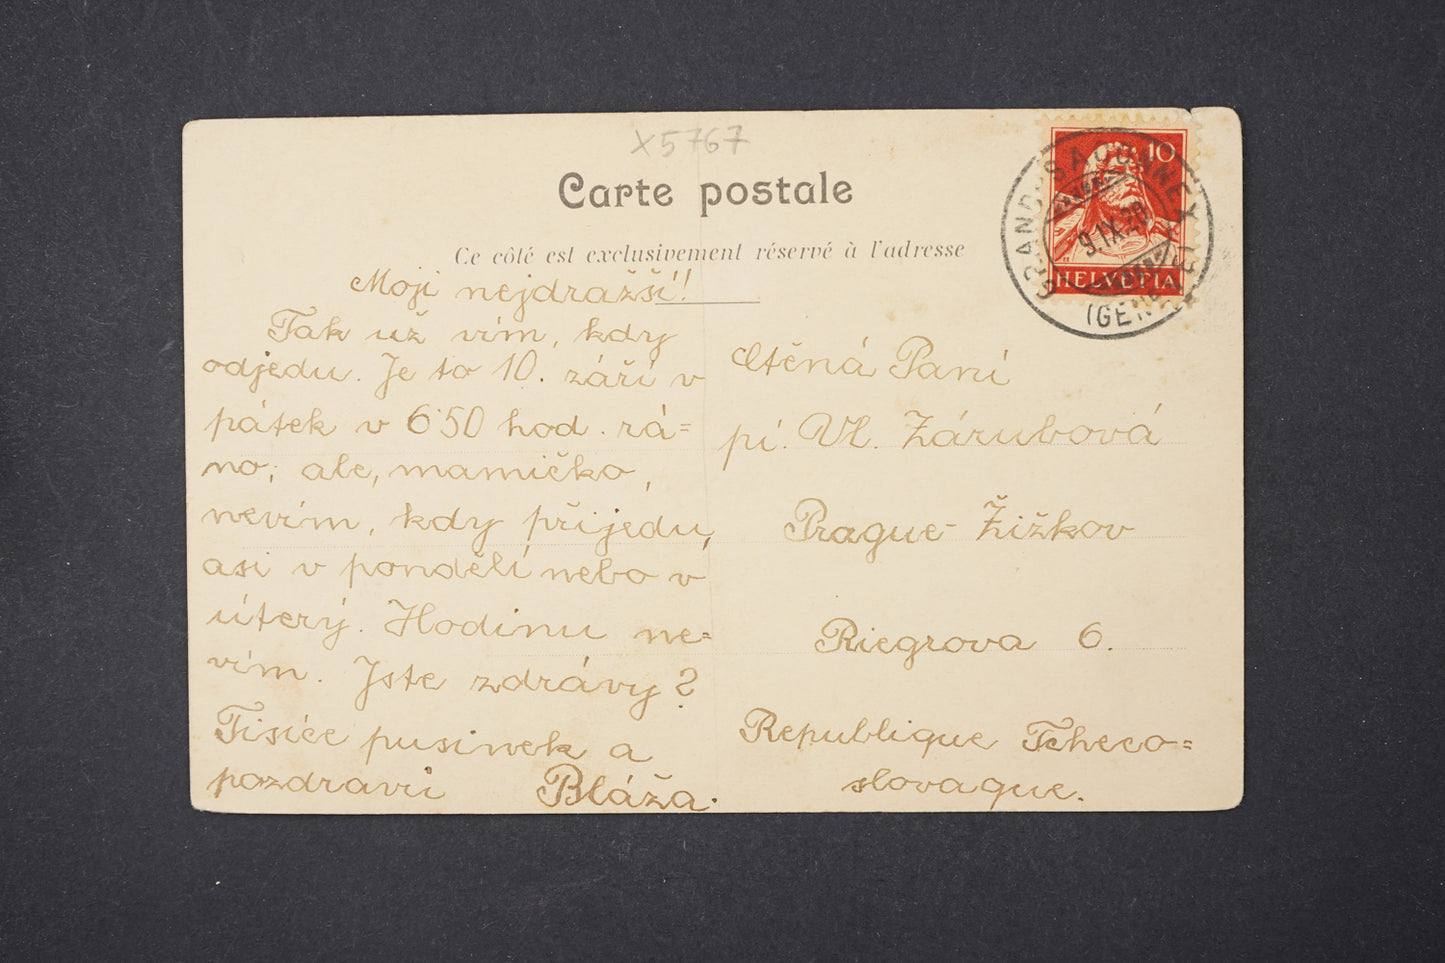 X5767
Carte postale
Ce côté est exclusivement réservé à l'adresse
Moji nejdražší!
Tak už vím, kdy
odjedu. Je to 10. září v
pátek v 6˙50 hod. rá=
no; ale, mamičko,
nevím, kdy přijedu,
asi v pondělí nebo v
úterý. Hodinu ne=
vím. Jste zdrávy?
Tisíce pusinek a
pozdraví Bláža.
10
HELVETIA
GRAND-SACONNEX
9.IX.20
(GEN
Ctěná Paní
pí. Vl. Zárubová
Prague-Žižkov
Riegrova 6.
Republique Tcheco=
slovaque.